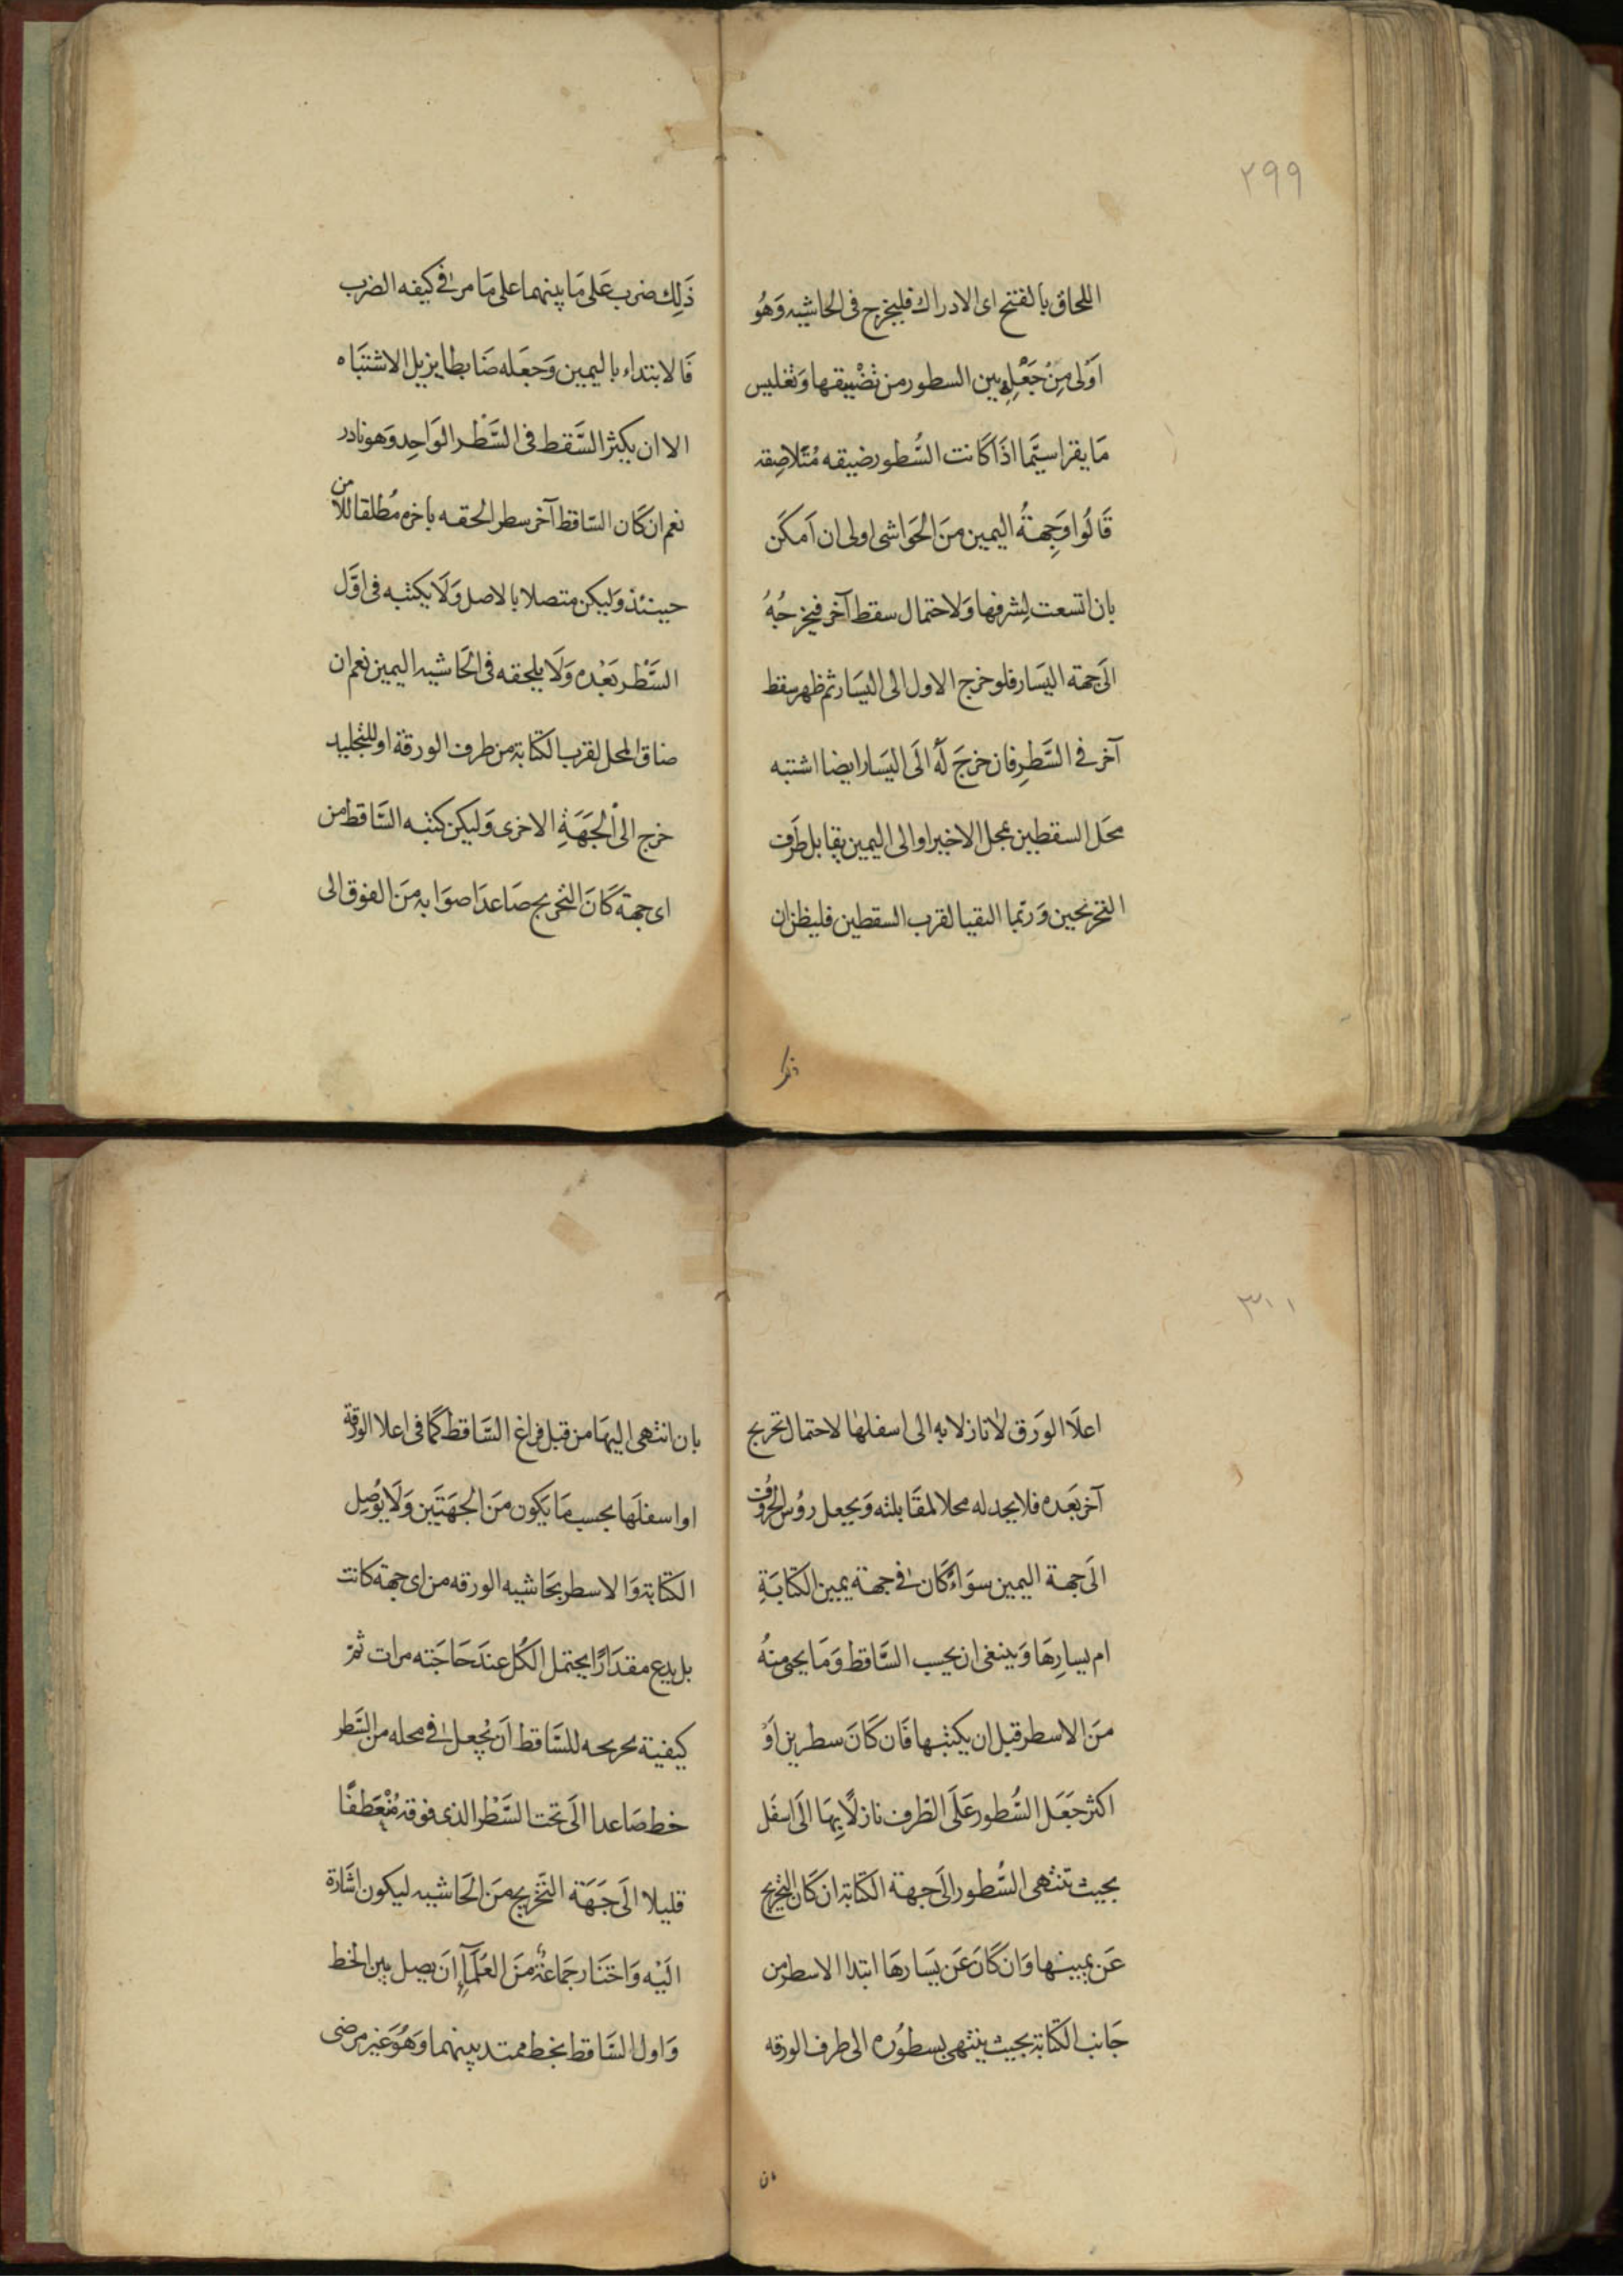 ٢٩٩
اللحاق بالفتح اى الادراك فليخرج فى الحاشيه وَهُو
اَوْلى مِنْ جَعْلِهِ بين السطور من تَضْيِيقها وَتغليس
مَا يقرا سيَّما اذَا كَانت السُّطور ضيقه مُتَلاصِقه
قَالُوا وَجِهةُ اليمين مِنَ الحَوَاشى اولى ان اَمكَن
بان اتسعت لِشرفها وَلاحتمال سقط آخر فيخرجُهُ
الَى جهة اليَسَار فلو خرج الاول الى اليَسَار ثم ظهر سقط
آخر فى السَّطرِ فان خرجَ لَهُ الَى اليَسَار ايضا اشتبه
محَل السقطين بمحل الاخير او الى اليمين يقابل طرَف
التخريجين وَربّما التقيا لقرب السقطين فليظن ان
ذلك
ذَلِك ضرب عَلى مَا بينهما على مَا مر فى كيفه الضرب
فَالابتداء باليمين وَجعَله ضَابطا يزيل الاشتبَاه
الا ان يكثر السَّقط فى السَّطْر الوَاحِد وَهو نادر
نعم ان كَان السّاقط آخر سطر الحقه باخره مُطلقا للامن
حينئذ وَليكن متصلا بالاصل وَلَا يكتبه فى اوَّل
السَّطْر بَعْده وَلَا يلحقه فى الحَاشيه اليمين نعم ان
ضاق المحل لقرب الكتابة من طرف الورقة او للتجليد
خرج الى الجهَةِ الاخرى وَليكن كتبه السَّاقط من
اى جهة كَانَ التخريج صَاعدَا صوَابه مِنَ الفوق الى
٣٠١
اعلَا الوَرق لا نازلا به الى اسفلها لاحتمال تخريج
آخر بَعَده فلا يجد له محلا لمقَابلته وَيجعل رؤس الحرُوف
الَى جهة اليمين سوَاءٌ كَان فى جهة يمين الكتابَةِ
ام يسارِهَا وَينبغى ان يحسب السَّاقط وَمَا يجى منهُ
مِنَ الاسطر قبل ان يكتبها فَان كَانَ سطرين اَوْ
اكثر جَعَل السُّطور عَلَى الطّرف نازلًا بِهَا الَى اسفَل
بحيث تنتهى السُّطور الَى جهة الكتابة ان كَان التخريج
عَن يمينها وَان كَانَ عَن يَسَارهَا ابتدا الاسطر من
جَانب الكتَابة بحيث ينتهى بسطوُره الى طرف الورقه
بان
بان انتهى اليهَا من قبل فراغ السَّاقط كمَا فى اعلا الورقة
او اسفلَها بحسب مَا يَكون مِنَ الجهَتَين وَلَا يُوصِل
الكتَابة وَالاسطر بحَاشيه الورقه من اى جهة كانت
بل يدع مقدَارًا يحتمل الكُل عندَ حَاجَته مرات ثمَّ
كيفية تخريجه للسَّاقط اَن يُجعل فى محله من السَّطر
خط صَاعدا الَى تحت السَّطر الذى فوقه مُنْعَطفًا
قليلا الَى جَهَة التَّخريج مِنَ الحَاشيه ليكون اشَارة
الَيْه وَاختَار جَمَاعَةٌ مِنَ العُلَمَاءِ اَن يصل بين الخط
وَاول السَّاقط بخط ممتد بينهما وَهُوَ غير مرضى